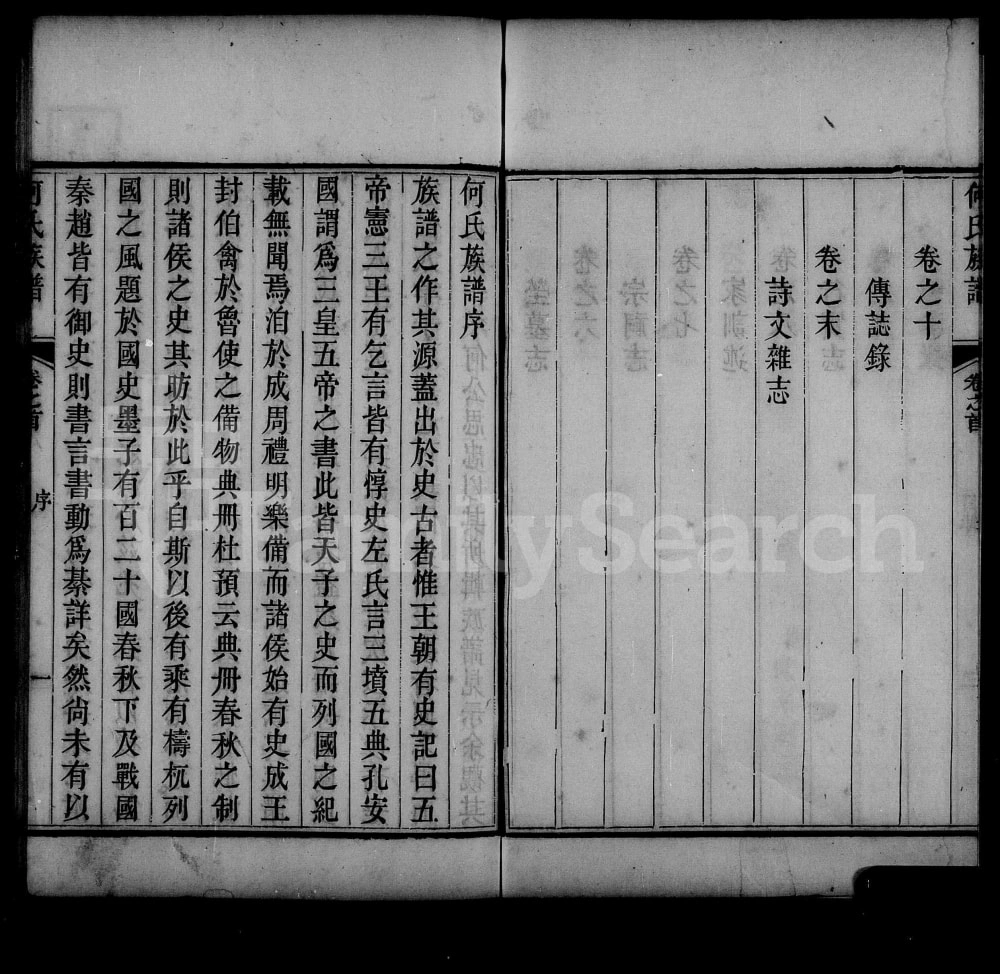 何氏族譜
卷之首
卷之十
傳誌錄
卷之末
詩文雜志
何氏族譜序
族譜之作其源蓋出於史古者惟王朝有史記曰五
帝憲三王有乞言皆有惇史左氏言三墳五典孔安
國謂爲三皇五帝之書此皆天子之史而列國之紀
載無聞焉洎於成周禮明樂備而諸侯始有史成王
封伯禽於魯使之備物典冊杜預云典冊春秋之制
則諸侯之史其昉於此乎自斯以後有乘有檮杌列
國之風題於國史墨子有百二十國春秋下及戰國
秦趙皆有御史則書言書動爲綦詳矣然尙未有以
何氏族譜
卷之首
序
一
FamilySearch